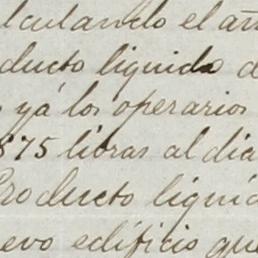 lculando el añ
ducto liquido d
yá los operarios
875 libras al dia
Producto liquid
evo edificio que